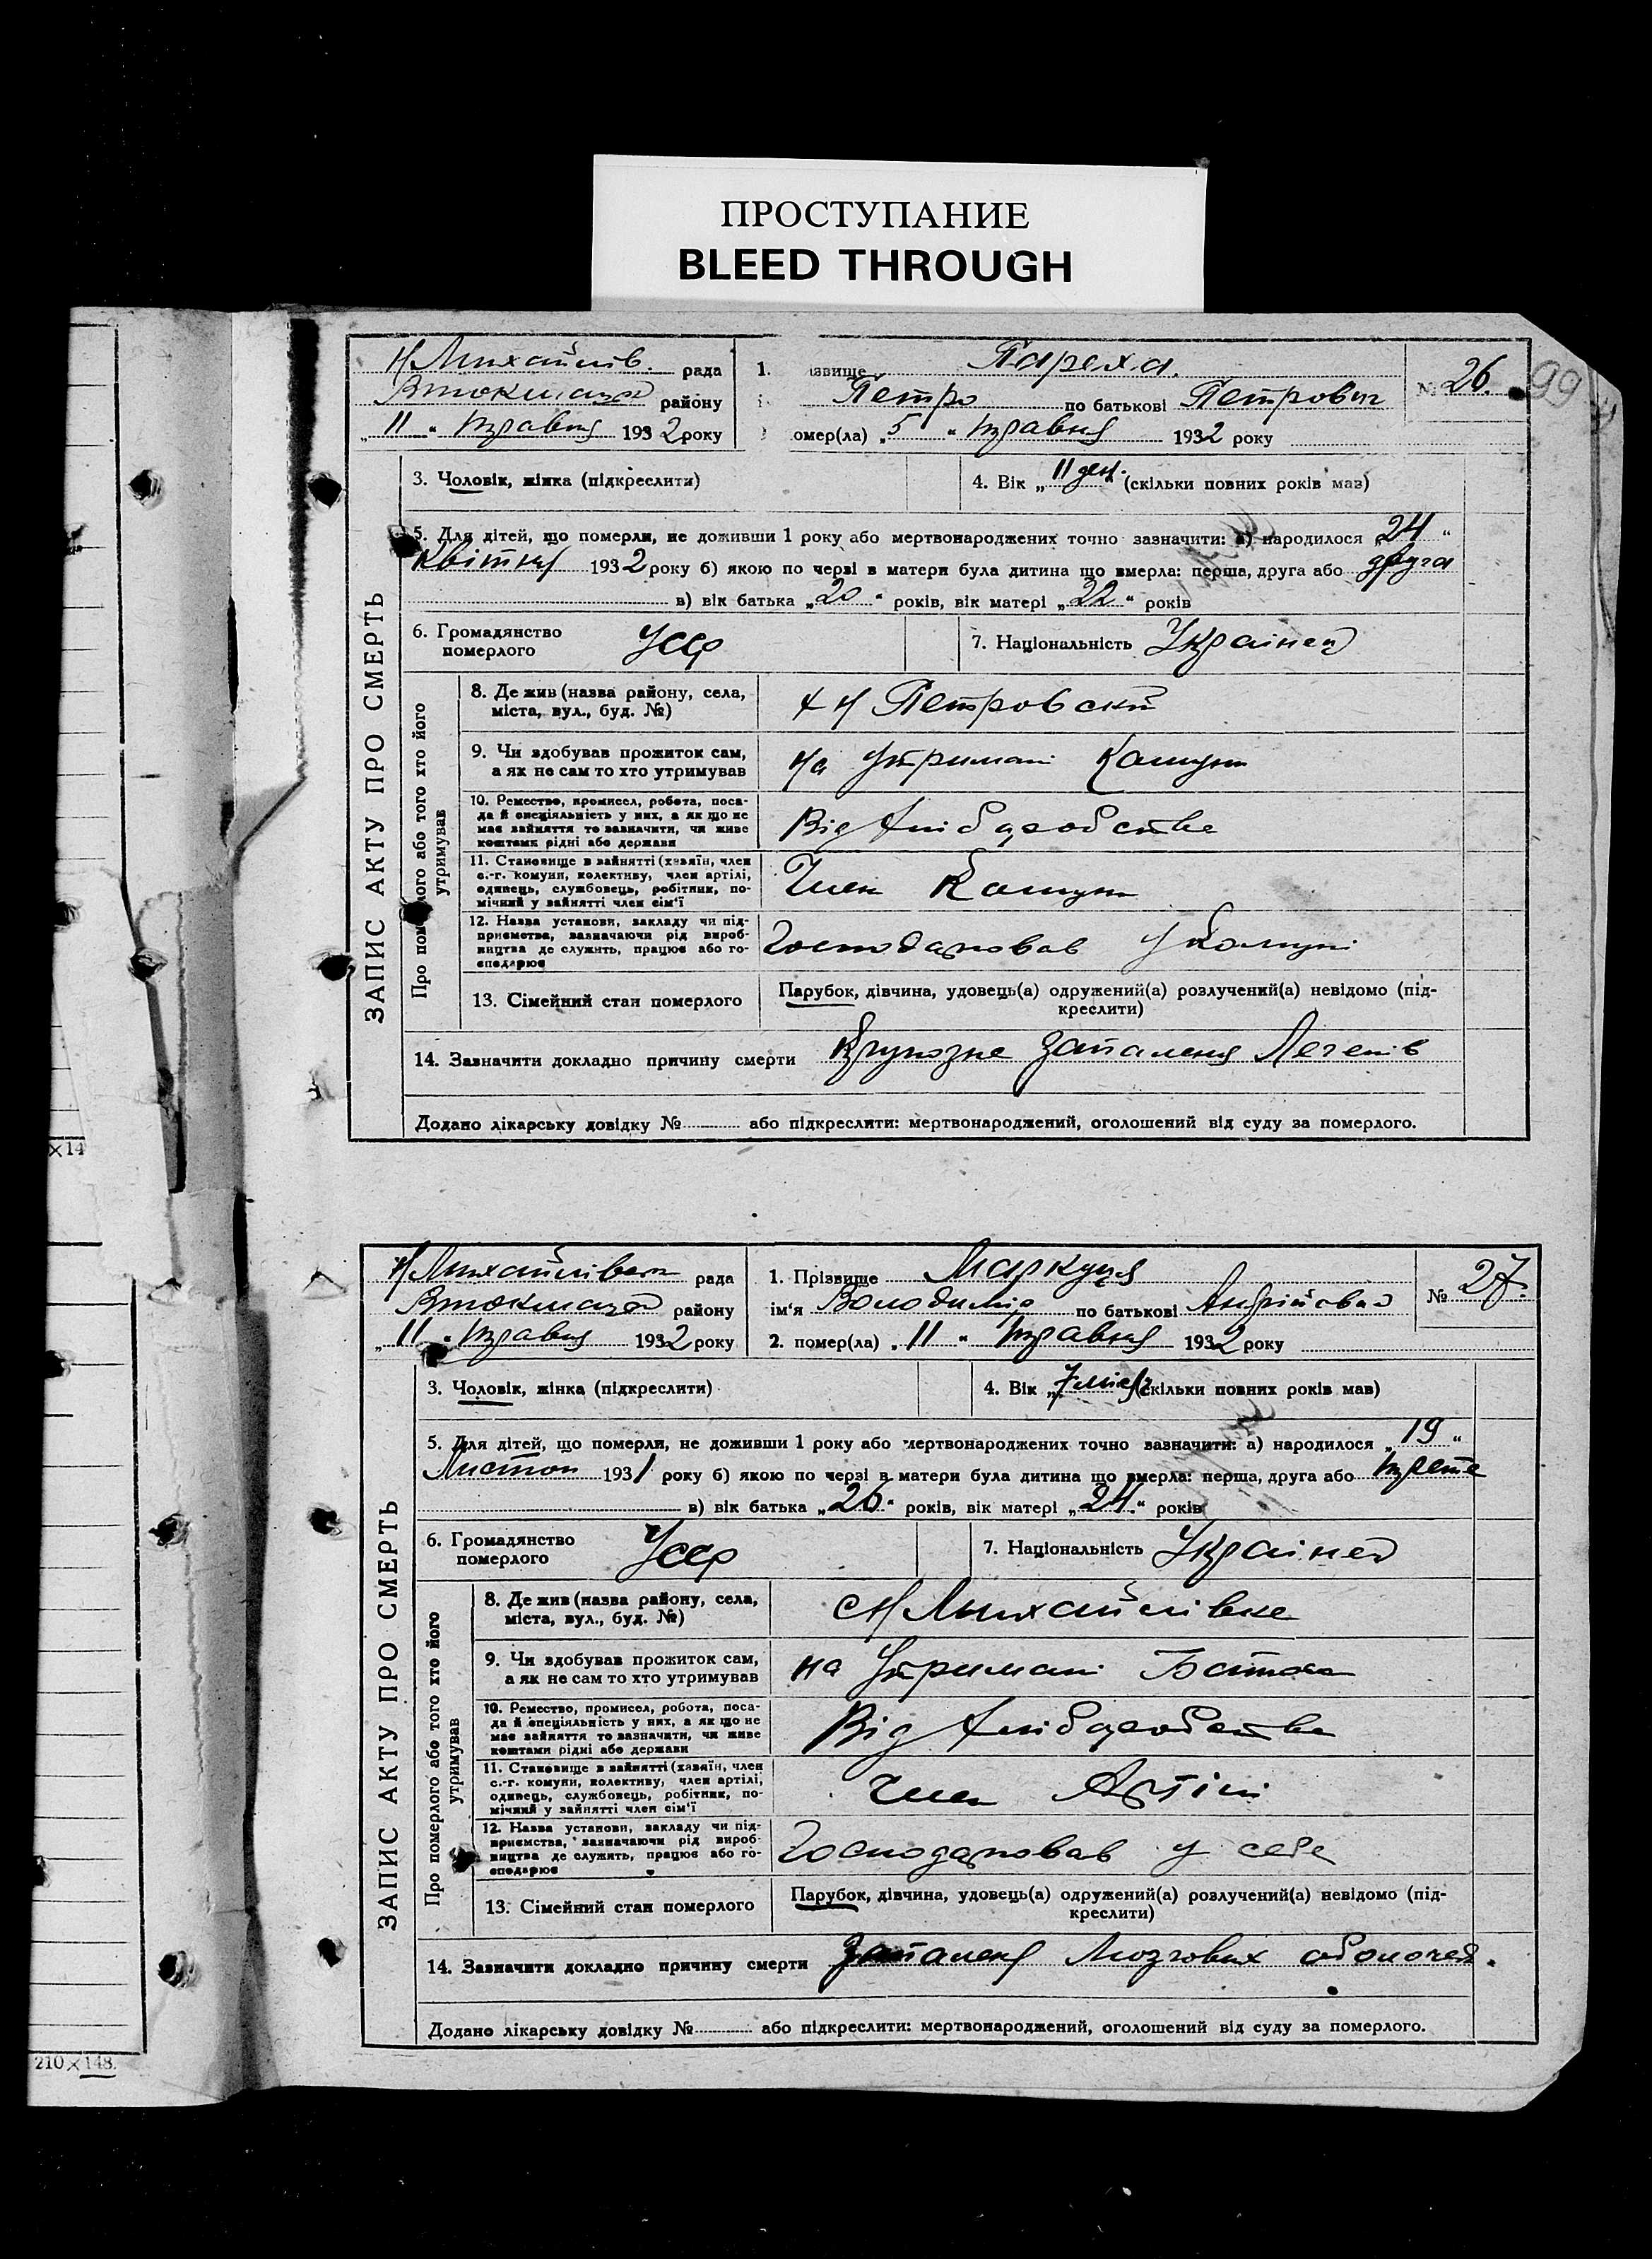 ПРОСТУПАНИЕ
BLEED THROUGH
99
Н Михайлів. рада
Втокмацьк району
„ 11 “ травня 1932 року
1. ізвище Пареха.
Петро по батькові Петрович
№ 26.
омер(ла) „ 5 “ травня 1932 року
3. Чоловік, жінка (підкреслити)
4. Вік „ 11 ден. (скільки повних років мав)
5. Для дітей, що померли, не доживши 1 року або мертвонароджених точно зазначити: а) народилося „ 24 “
Квітня 1932 року б) якою по черзі в матери була дитина що вмерла: перша, друга або друга
в) вік батька „ 20 “ років, вік матері „ 22 “ років
ЗАПИС АКТУ ПРО СМЕРТЬ
6. Громадянство
померлого
Усср
7. Національність Українец
Про пом ного або того хто його
утримував
8. Де жив (назва району, села,
міста, вул., буд. №)
х Н Петровский
9. Чи здобував прожиток сам,
а як не сам то хто утримував
На Утримані Комуни
10. Ремество, промисел, робота, поса-
да й спеціяльність у них, а як що не
має зайняття то зазначити, чи живе
коштами рідні або держави
Від Хлібаробства
11. Становище в зайнятті (хазяїн, член
с.-г. комуни, колективу, член артілі,
одинець, службовець, робітник, по-
мічний у зайнятті член сім'ї
Член Комуни
12. Назва установи, закладу чи під-
приємства, зазначаючи рід вироб-
ництва де служить, працює або го-
сподарює
Господарював У Комуні
13. Сімейний стан померлого
Парубок, дівчина, удовець(а) одружений(а) розлучений(а) невідомо (під-
креслити)
14. Зазначити докладно причину смерти Крупозне Запаленя Легенів
Додано лікарську довідку № або підкреслити: мертвонароджений, оголошений від суду за померлого.
×14
Н Михайлівськ рада
Втокмацьк району
„ 11 “ травня 1932 року
1. Прізвище Маркуця
ім'я Володимір по батькові Андрійович
№ 27.
2. помер(ла) „ 11 “ травня 1932 року
3. Чоловік, жінка (підкреслити)
4. Вік „ 7 міся (скільки повних років мав)
5. Для дітей, що померли, не доживши 1 року або мертвонароджених точно зазначити: а) народилося „ 19 “
Листоп 1931 року б) якою по черзі в матери була дитина що вмерла: перша, друга або трете
в) вік батька „ 26 “ років, вік матері „ 24 “ років
ЗАПИС АКТУ ПРО СМЕРТЬ
6. Громадянство
померлого
Усср
7. Національність Українец
Про померлого або того хто його
утримував
8. Де жив (назва району, села,
міста, вул., буд. №)
с Н Михайлівка
9. Чи здобував прожиток сам,
а як не сам то хто утримував
на Утримані Батька
10. Ремество, промисел, робота, поса-
да й спеціяльність у них, а як що не
має зайняття то зазначити, чи живе
коштами рідні або держави
Від Хлібаробства
11. Становище в зайнятті (хазяїн, член
с.-г. комуни, колективу, член артілі,
одинець, службовець, робітник, по-
мічний у зайнятті член сім'ї
член Артіли
12. Назва установи, закладу чи під-
приємства, зазначаючи рід вироб-
ництва де служить, працює або го-
сподарює
Господарював у себе
13. Сімейний стан померлого
Парубок, дівчина, удовець(а) одружений(а) розлучений(а) невідомо (під-
креслити)
14. Зазначити докладно причину смерти Запаленя Мозгових оболочек.
Додано лікарську довідку № або підкреслити: мертвонароджений, оголошений від суду за померлого.
210×148.